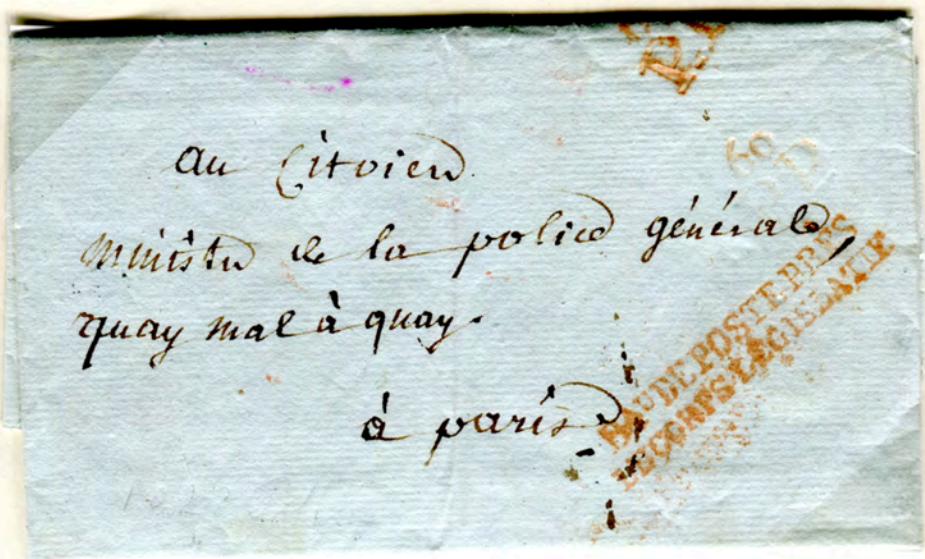 au Citoien
ministre de la police générale,
quay malàquay.
à paris
60
P
BAU DE POSTE PRES
LE CORPS LEGISLATIF